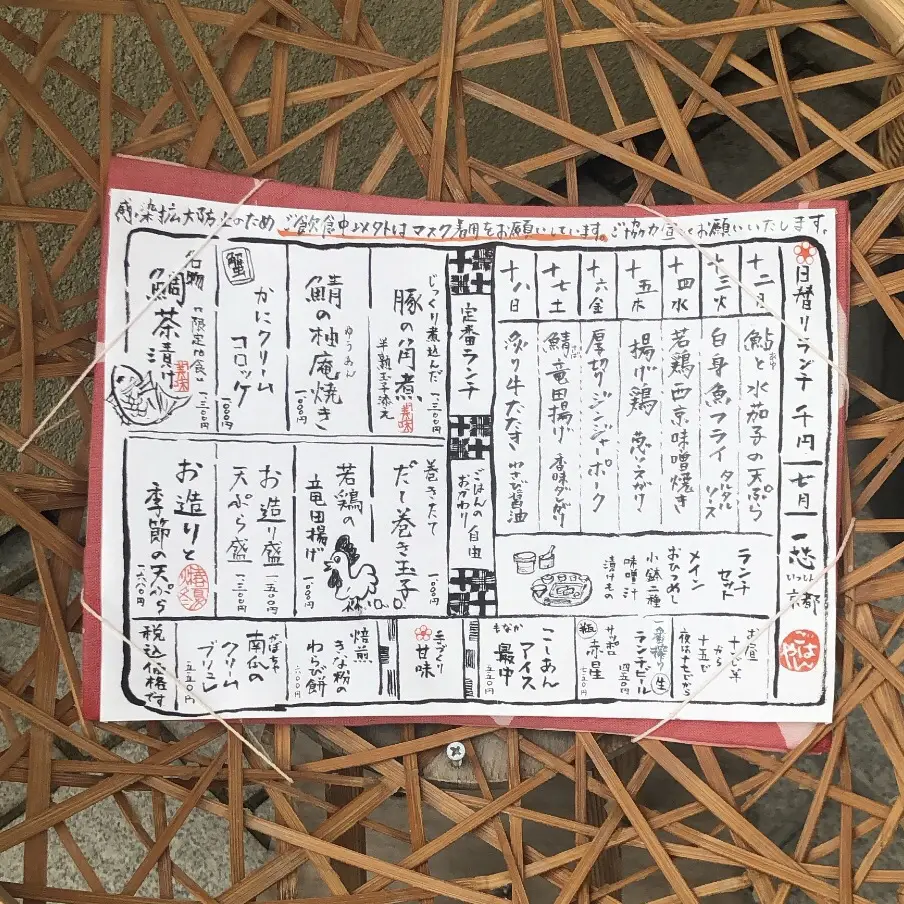 感染拡大防止のため ご飲食中以外はマスク着用をお願いしています。ご協力宜しくお願いいたします。
日替りランチ 千円
七月
一愁
いっしゅう
京都
ごはんや
十二月
鮎と水茄子の天ぷら
あゆ
十三火
白身魚フライ タルタルソース
十四水
若鶏西京味噌焼き
十五木
揚げ鶏 葱ソースがけ
十六金
厚切りジンジャーポーク
十七土
鯖竜田揚げ 香味ダレがけ
さば
十八日
炙り牛たたき わさび醤油
ランチ
セット
メイン
おひつめし
小鉢二種
味噌汁
漬けもの
定番ランチ
ごはんの
おかわり
自由
じっくり煮込んだ
豚の角煮
半熟玉子添え
美味
一、三〇〇円
鯖の柚庵焼き
ゆうあん
一、一〇〇円
蟹
かにクリーム
コロッケ
一、〇〇〇円
名物
鯛茶漬け
限定10食
美味
一、三〇〇円
巻きたて
だし巻き玉子
一、一〇〇円
若鶏の
竜田揚げ
一、〇〇〇円
お造り盛
一、五〇〇円
天ぷら盛
一、三〇〇円
お造りと
季節の天ぷら
一、六〇〇円
お昼
十一じ半
から
十五じ
夜は十七じから
一番搾り 生
ランチビール
四五〇円
サッポロ
赤星
瓶
七五〇円
こしあん
アイス
最中
もなか
五五〇円
手づくり
甘味
焙煎
きな粉の
わらび餅
六〇〇円
かぼちゃ
南瓜の
クリーム
ブリュレ
五五〇円
税込価格です